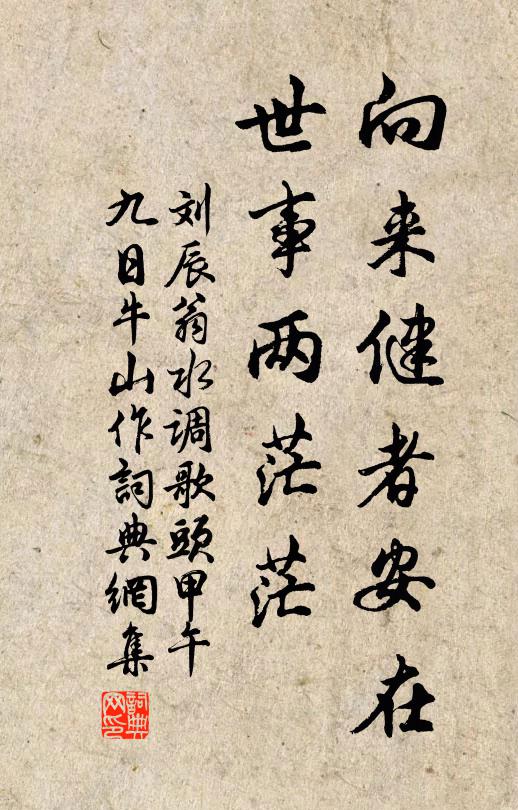 向来健者安在
世事两茫茫
刘辰翁水调歌頭甲午
九日牛山作詞典網集
詞典網印